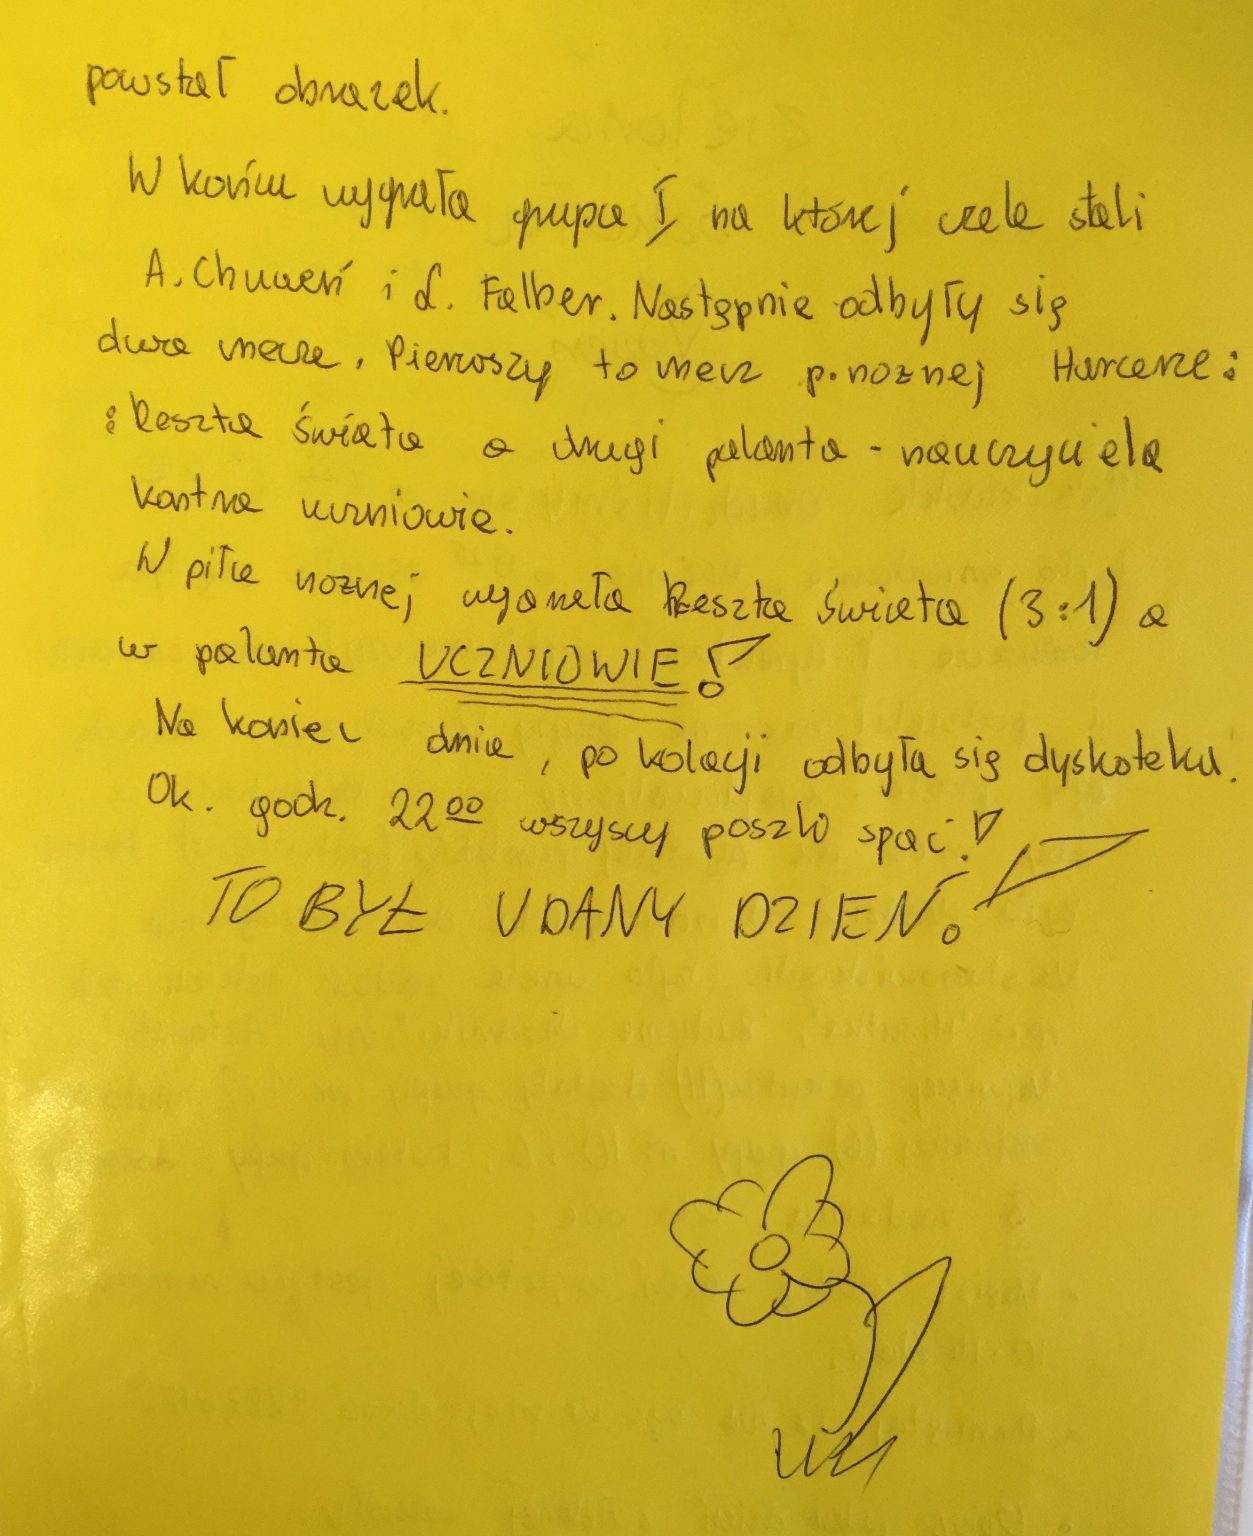 powstał obrazek.
W końcu wygrała grupa I na której czele stali
A. Chuweń i Ł. Falber. Następnie odbyły się
dwa mecze. Pierwszy to mecz p. nożnej Harcerze :
: Reszta świata a drugi palanta - nauczyciela
kontra uczniowie.
W piłce nożnej wygrała Reszta świata (3:1) a
w palanta UCZNIOWIE!
Na koniec dnia, po kolacji odbyła się dyskoteka.
Ok. godz. 22 00 wszyscy poszło spać!
TO BYŁ UDANY DZIEŃ!